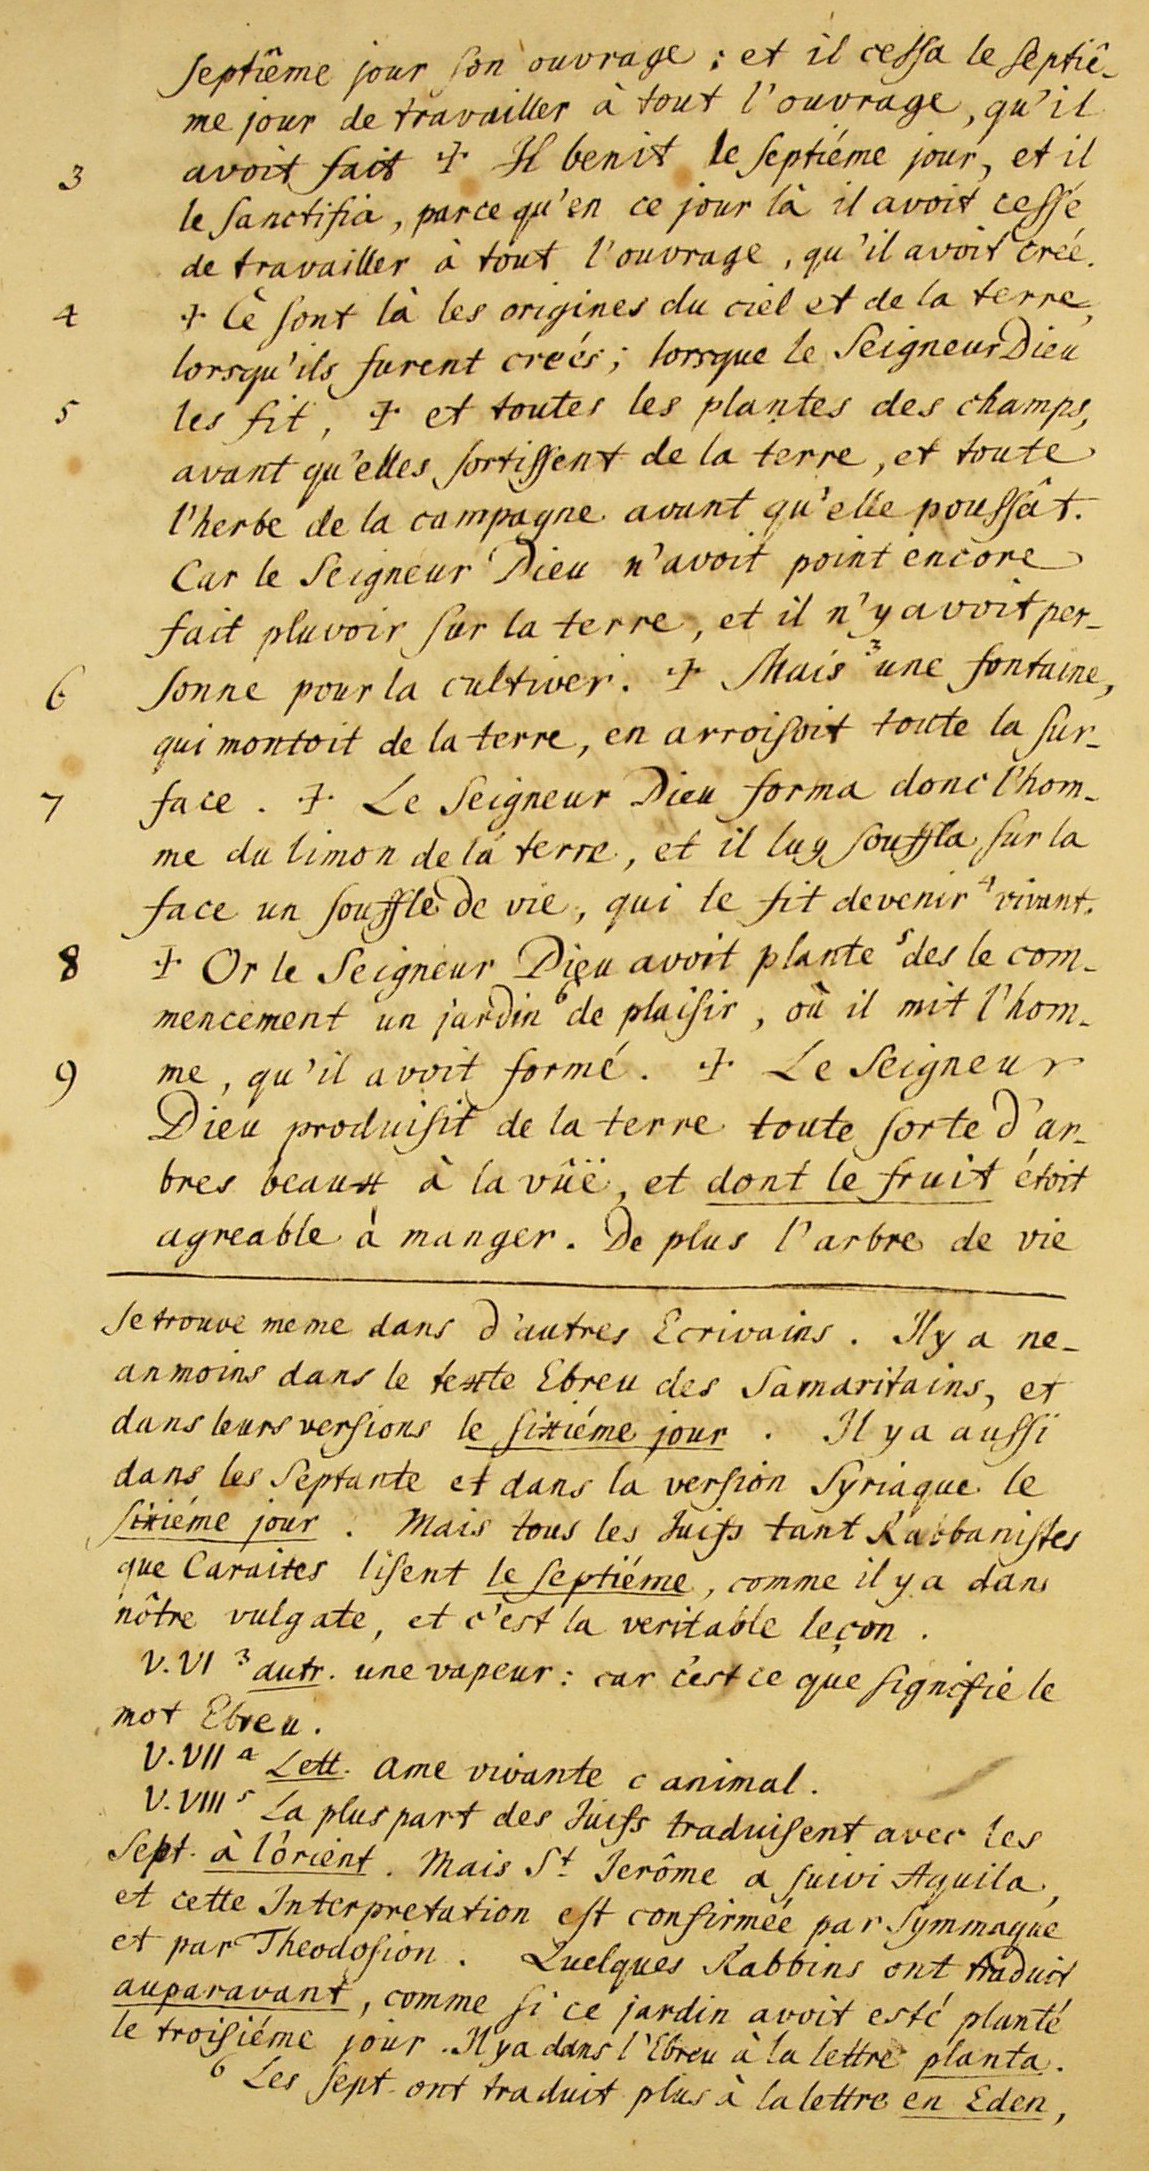 septiême jour son ouvrage : et il cessa le septiê-
me jour de travailler à tout l'ouvrage, qu'il
3 avoit fait ✢ Il benit le septiéme jour, et il
le sanctifia, parce qu'en ce jour là il avoit cessé
de travailler à tout l'ouvrage, qu'il avoit creé.
4 ✢ Ce sont là les origines du ciel et de la terre,
lorsqu'ils furent creés; lorsque le Seigneur Dieu
5 les fit, ✢ et toutes les plantes des champs,
avant qu'elles sortissent de la terre, et toute
l'herbe de la campagne avant qu'elle poussât.
Car le Seigneur Dieu n'avoit point encore
fait pluvoir sur la terre, et il n'y avoit per-
6 sonne pour la cultiver. ✢ Mais ³ une fontaine,
qui montoit de la terre, en arroisoit toute la sur-
7 face. ✢ Le Seigneur Dieu forma donc l'hom-
me du limon de la terre, et il luy souffla sur la
face un souffle de vie, qui le fit devenir ⁴ vivant.
8 ✢ Or le Seigneur Dieu avoit planté ⁵ des le com-
mencement un jardin ⁶ de plaisir, où il mit l'hom-
9 me, qu'il avoit formé. ✢ Le Seigneur
Dieu produisit de la terre toute sorte d'ar-
bres beaux à la vûë, et dont le fruit étoit
agreable à manger. De plus l'arbre de vie
se trouve meme dans d'autres Ecrivains. Il y a ne-
anmoins dans le texte Ebreu des Samaritains, et
dans leurs versions le sixiéme jour. Il y a aussi
dans les Septante et dans la version Syriaque le
sixiéme jour. Mais tous les Juifs tant Rabbanistes
que Caraites lisent le septiéme, comme il y a dans
nôtre vulgate, et c'est la veritable leçon.
V. VI ³ autr. une vapeur : car c'est ce que signifie le
mot Ebreu.
V. VII ⁴ Lett. ame vivante c animal.
V. VIII ⁵ La pluspart des Juifs traduisent avec les
Sept. à l'orient. Mais St Jerôme a suivi Aquila,
et cette Interpretation est confirmée par Symmaque
et par Theodosion. Quelques Rabbins ont traduit
auparavant, comme si ce jardin avoit esté planté
le troisiéme jour. Il y a dans l'Ebreu à la lettre planta.
⁶ Les sept. ont traduit plus à la lettre en Eden,